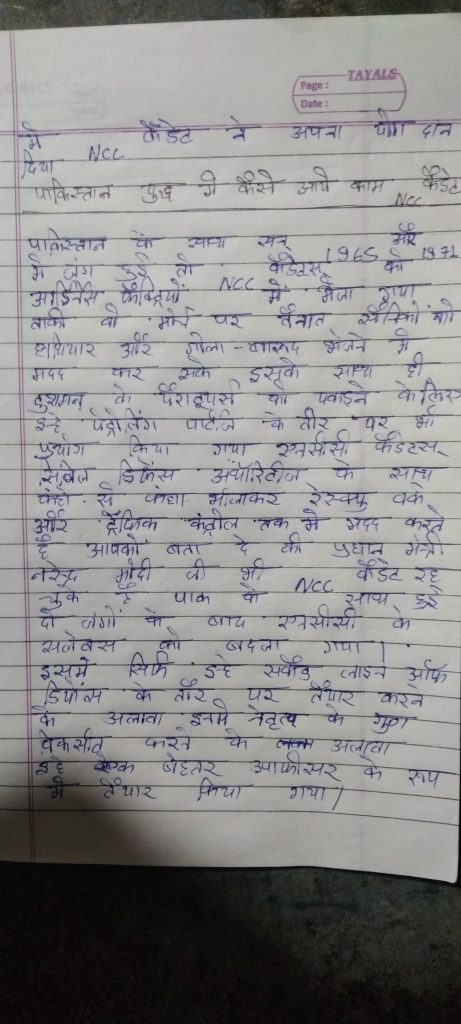 TAYALS
Page :
Date :
में NCC कैडेट ने अपना योग दान
दिया
पाकिस्तान युद्ध में कैसे आये काम NCC कैडेट
पाकिस्तान के साथ सन् 1965 और 1971
में जंग हुई तो NCC कैडेटस् को
आर्डिनेंस फैक्ट्रियों में भेजा गया
ताकी वो मोर्चे पर तैनात सैनिकों को
हथियार और गोला-बारूद भेजने में
मदद कर सके इसके साथ ही
दुशमन के पैराट्रूपर्स को पकड़ने के लिए
इन्हे पेट्रोलिंग पार्टीज के तौर पर भी
प्रयोग किया गया एनसीसी कैडेटस्
सिविल डिफेंस अथॉरिटीज के साथ
कंधा से कंधा मीलाकर रेस्क्यु वर्क
और ट्रैफिक कंट्रोल तक में मदद करते
है आपको बता दे की प्रधान मंत्री
नरेन्द्र मोदी जी भी NCC कैडेट रह
चुके है पाक के साथ हुई
दो जंगों के बाद एनसीसी के
सलेबस को बदला गया।
इसमें सिर्फ इन्हे सेकेंड लाइन ऑफ
डिफेंस के तौर पर तैयार करने
के अलावा इनमें नेतृत्व के गुण
वेकसीत करने के अलावा
इन्हे एक बेहतर आफीसर के रूप
में तैयार किया गया।